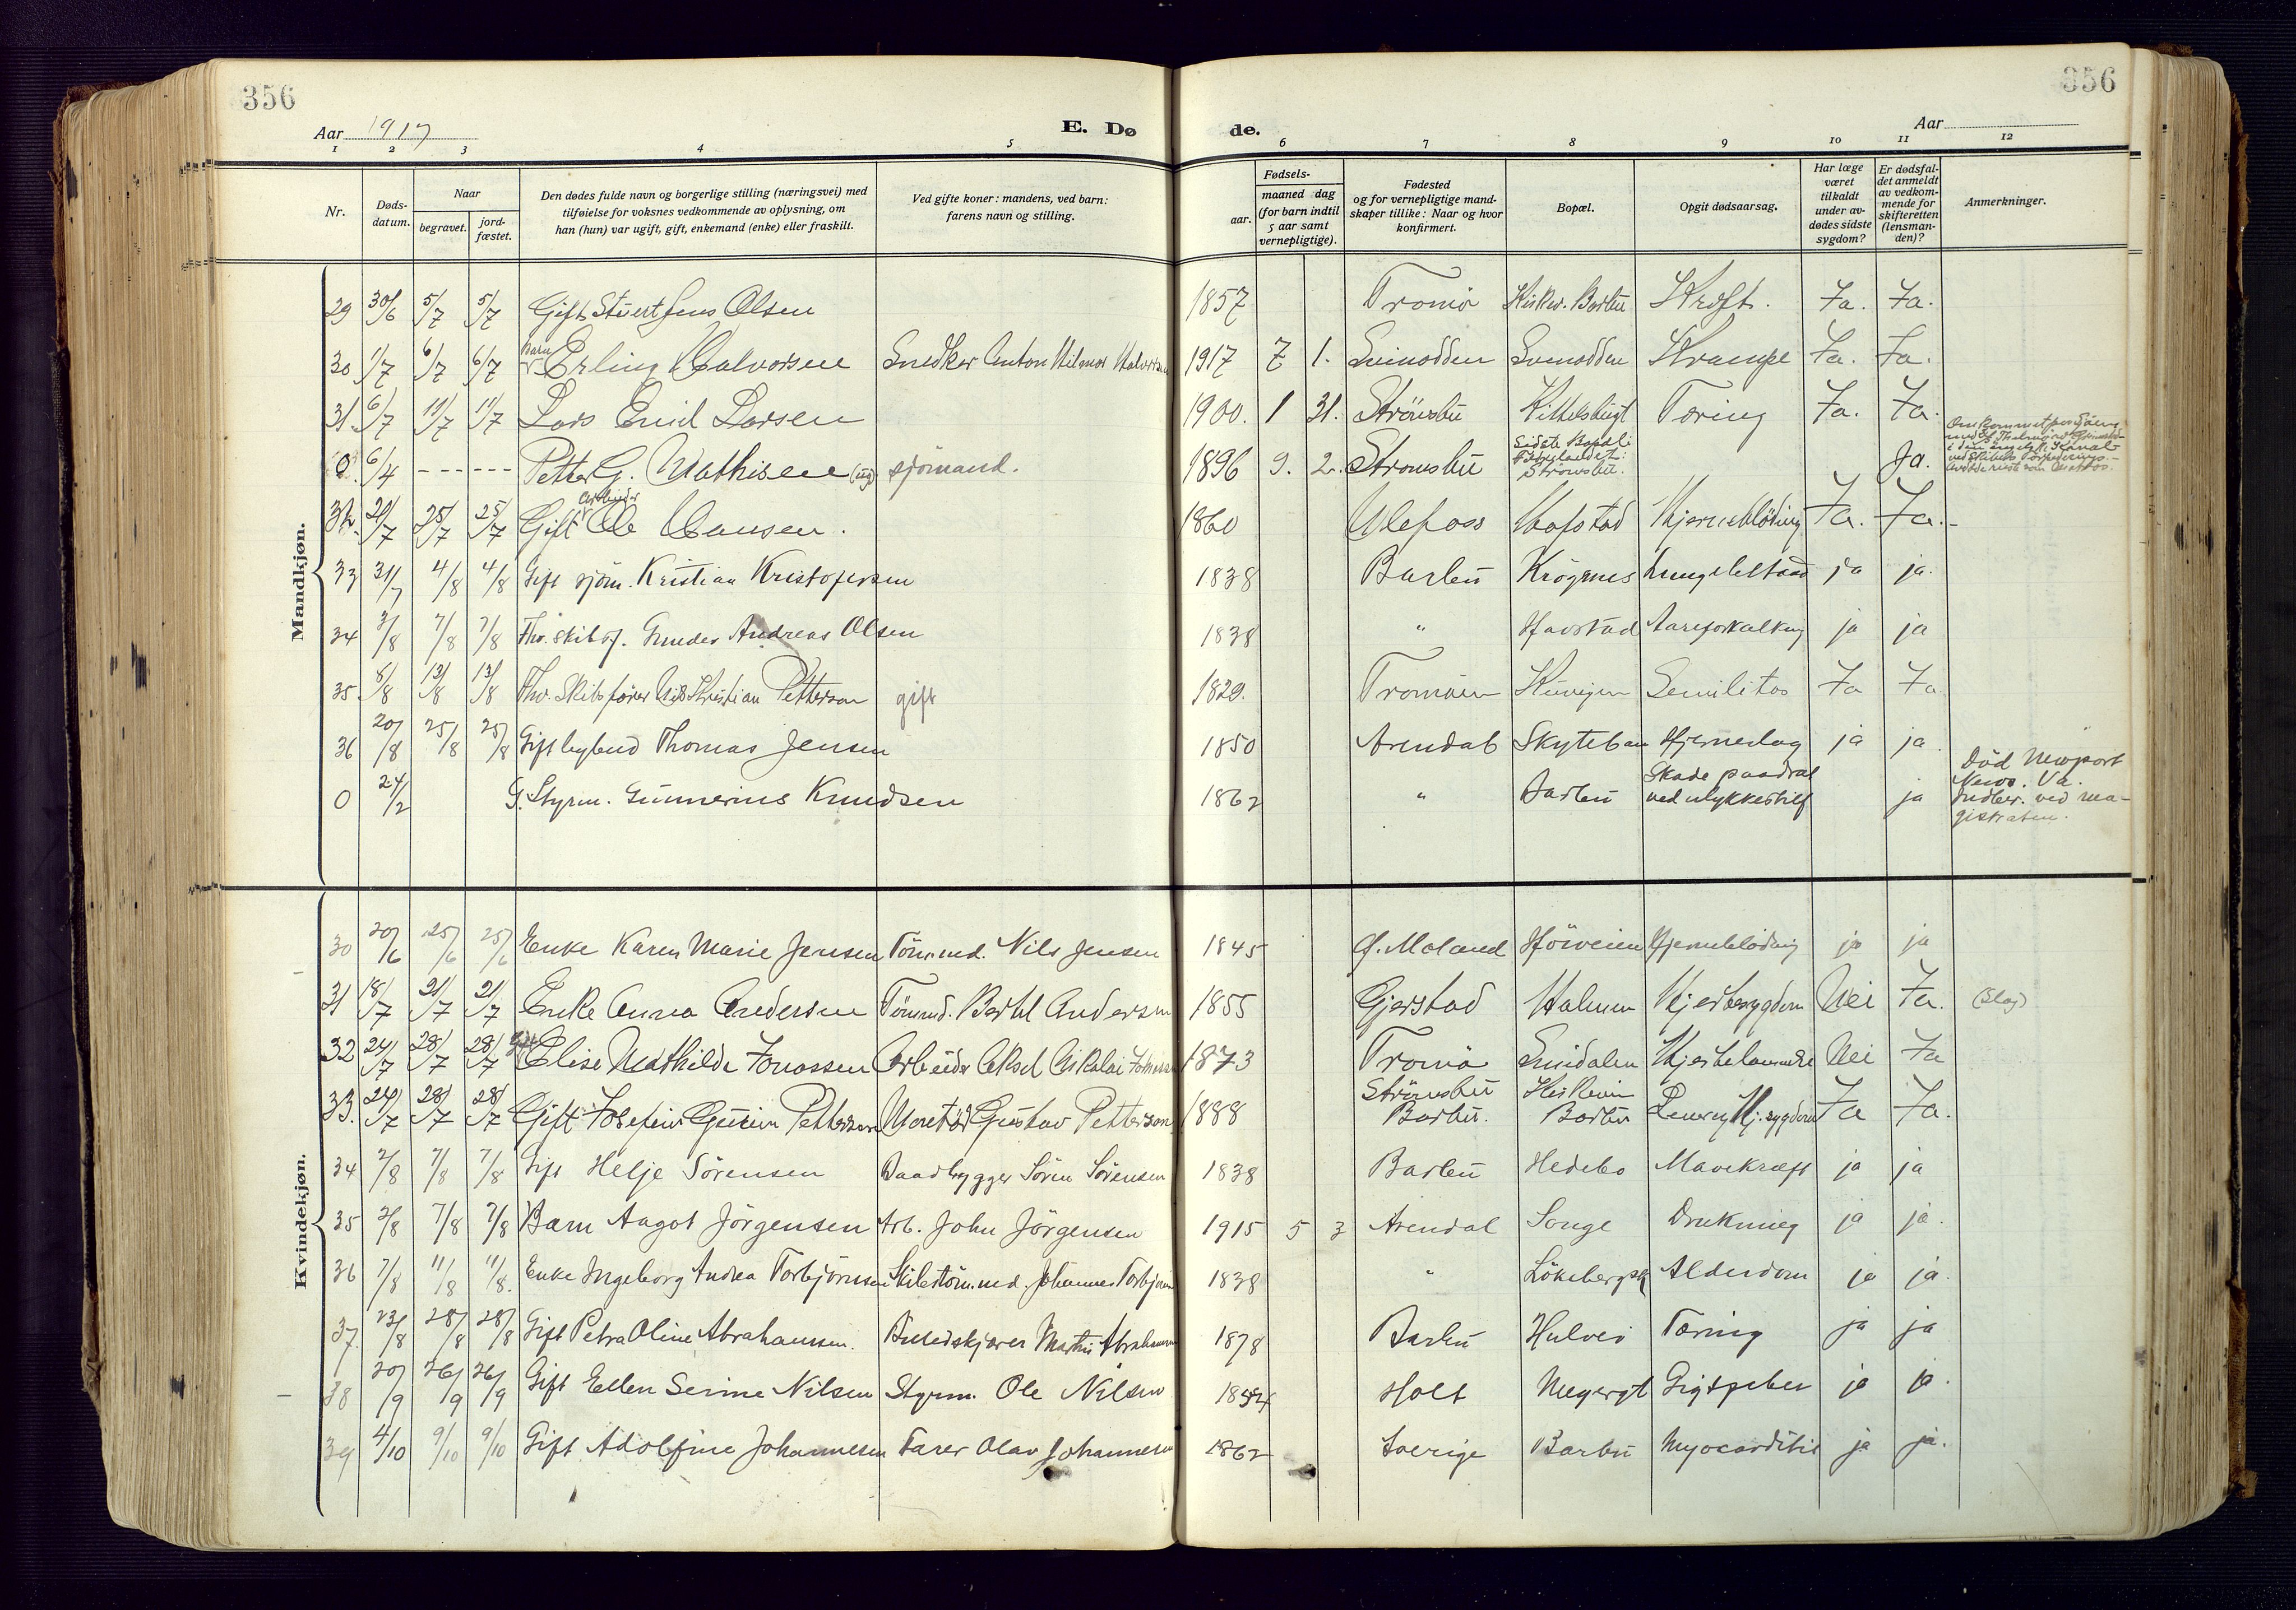 356
356
Aar 1917
E. Dø
de.
Aar
1 2 3 4 5 6 7 8 9 10 11 12
Nr.
Døds-
datum.
Naar
begravet.
jord-
fæstet.
Den dødes fulde navn og borgerlige stilling (næringsvei) med
tilføielse for voksnes vedkommende av oplysning, om
han (hun) var ugift, gift, enkemand (enke) eller fraskilt.
Ved gifte koner: mandens, ved barn:
farens navn og stilling.
Fødsels-
aar.
maaned dag
(for barn indtil
5 aar samt
vernepligtige).
Fødested
og for vernepligtige mand-
skaper tillike: Naar og hvor
konfirmert.
Bopæl.
Opgit dødsaarsag.
Har læge
været
tilkaldt
under av-
dødes sidste
sygdom?
Er dødsfal-
det anmeldt
av vedkom-
mende for
skifteretten
(lensman-
den)?
Anmerkninger.
Mandkjøn.
29 30/6 5/7 5/7 Gift Stuert Jens Olsen 1857 Tromö Barbu Kræft. Ja. Ja.
30 1/7 6/7 6/7 Barn Erling Halvorsen Snedker Anton Hilmar Halvorsen 1917 7 1. Svinodden Svinodden Krampe Ja. Ja.
31 6/7 11/7 11/7 Lars Emil Larsen 1900. 1 31. Strömsbu Kittelsbugt Tæring Ja. Ja.
0. 6/4 ------ Petter G. Mathisen (ug) sjömand. 1896 9. 2. Stromsbu Sidste Bopæl i Strömsbu. Ja. Omkommet
32. 21/7 25/7 25/7 Gift Arbeider Ole Hansen. 1860 Ulefoss Hofstad Hjerneblödning Ja. Ja.
33 31/7 4/8 4/8 Gift sjöm. Kristian Kristofersen 1838 Barbu Krögenes ja ja.
34 3/8 7/8 7/8 Fhv. skibsf. Gunder Andreas Olsen 1838 " Havstad Aareforkalkng ja ja
35 8/8 13/8 13/8 Fhv. Skibsförer Nils Kristian Petterson gift 1829. Tromöen Senilitas Ja Ja
36 20/8 25/8 25/8 Gift Thomas Jensen 1850 Arendal Skyteban Hjerneslag ja ja
0 24/2 G. Styrm. Gunnerius Knudsen 1862 " Barbu Skade paadrat ved ulykkestilf ja Död Newport News. Va. Indber. ved ma-
gistraten.
Kvindekjøn.
30 20/6 25/6 25/6 Enke Karen Marie Jensen Tömmd. Nils Jensen 1845 Ø. Moland Höiveien Hjerneblödnig ja ja
31 18/7 21/7 21/7 Enke Anna Andersen Tömmd. Bertel Andersen 1855 Gjerstad Holmen Hjertesygdom Nei Ja. (Slag)
32 24/7 28/7 28/7 Gift Elise Mathilde Jonassen Arbeider Aksel Nikolai Jonassen 1873 Tromö Hjertelammelse Nei Ja
33. 24/7 28/7 28/7 Gift Josefine Pettersen Gustav Petterson 1888 Strömsbu Barbu. Barbu Hj. sygdom Ja Ja.
34 2/8 7/8 7/8 Gift Helje Sörensen Baadbygger Sören Sörensen 1838 Barbu Hedebo Mavekræft ja ja
35 2/8 7/8 7/8 Barn Aagot Jörgensen Arb. John Jörgensen 1915 5 3 Arendal Songe Drukning ja ja.
36 7/8 11/8 11/8. Enke Ingeborg Andrea Torbjörnsen Skibstöm.md. Johannes Torbjörnsen 1838 " Alderdom ja ja.
37. 23/8 28/8 28/8 Gift Petra Oline Abrahamsen. Martin Abrahamsen 1878 Barbu Hulvei Tæring ja ja
38 20/9 26/9 26/9 Gift Ellen Serine Nilsen Styrm. Ole Nilsen 1854 Holt Gigtfeber ja ja.
39 4/10 9/10 9/10 Gift Adolfine Johannesen Farer Olav Johannesen 1862 Sverige Barbu Myocarditis ja ja.